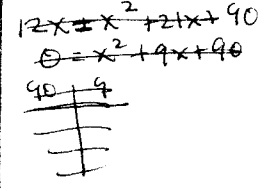 12x = x² + 21x + 90
0 = x² + 9x + 90
90 9